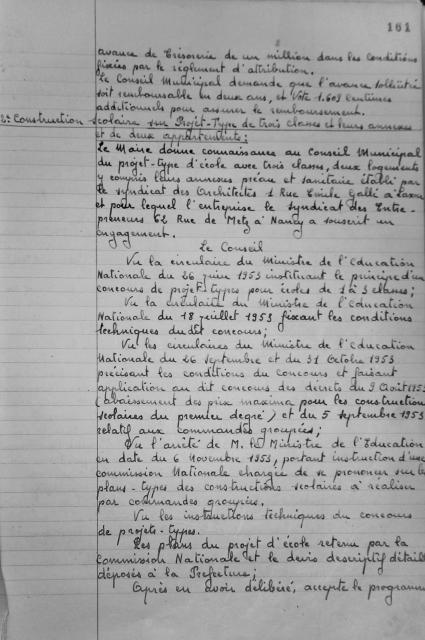 161
avance de trésorerie de un million dans les conditions
fixées par le règlement d'attribution.
Le Conseil Municipal demande que l'avance sollicitée
soit remboursable en deux ans, et vote 1.609 centimes
additionnels pour assurer le remboursement.
2° Construction scolaire sur Projet-Type de trois classes et leurs annexes
et de deux appartements:
Le Maire donne connaissance au Conseil Municipal
du projet-type d'école avec trois classes, deux logements
y compris leurs annexes préau et sanitaire établi par
le syndicat des Architectes 1 Rue Emile Gallé à Laxou
et pour lequel l'entreprise le syndicat des Entre-
preneurs 62 Rue de Metz à Nancy a souscrit un
engagement.
Le Conseil
Vu la circulaire du Ministre de l'Education
Nationale du 26 juin 1953 instituant le principe d'un
concours de projets-types pour écoles de 1 à 3 classes;
Vu la circulaire du Ministre de l'Education
Nationale du 18 juillet 1953 fixant les conditions
techniques du dit concours;
Vu les circulaires du Ministre de l'Education
Nationale du 26 septembre et du 31 Octobre 1953
précisant les conditions du concours et faisant
application au dit concours des décrets du 9 Août 1953
(abaissement des prix maxima pour les constructions
scolaires du premier degré) et du 5 septembre 1953
relatif aux commandes groupées;
Vu l'arrêté de M. le Ministre de l'Education
en date du 6 Novembre 1953, portant instruction d'une
commission Nationale chargée de se prononcer sur les
plans-types des constructions scolaires à réaliser
par commandes groupées.
Vu les instructions techniques du concours
de projets-types.
Les plans du projet d'école retenu par la
Commission Nationale et le devis descriptif détaillé
déposés à la Préfecture;
Après en avoir délibéré, accepte le programme